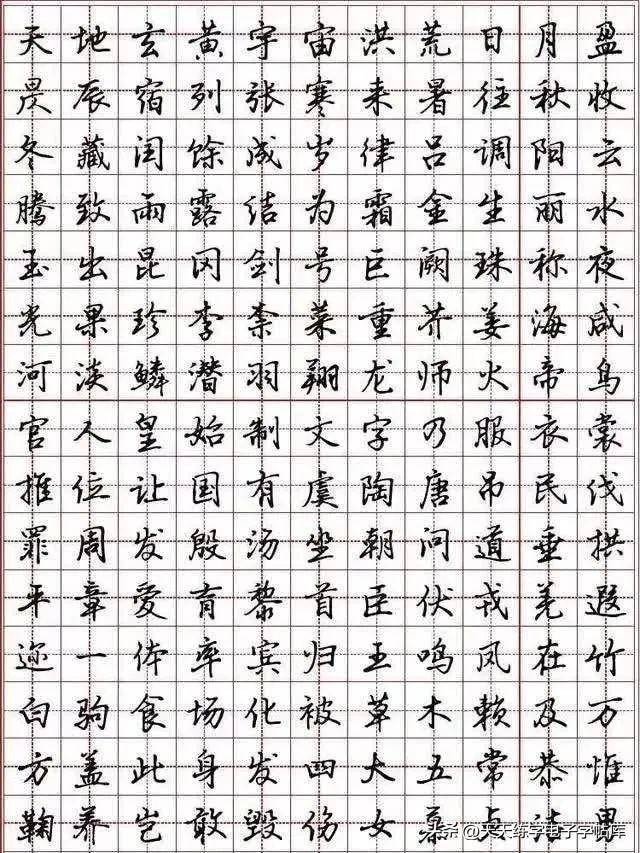 天地玄黄宇宙洪荒日月盈
昃辰宿列张寒来暑往秋收
冬藏闰馀成岁律吕调阳云
腾致雨露结为霜金生丽水
玉出昆冈剑号巨阙珠称夜
光果珍李柰菜重芥姜海咸
河淡鳞潜羽翔龙师火帝鸟
官人皇始制文字乃服衣裳
推位让国有虞陶唐吊民伐
罪周发殷汤坐朝问道垂拱
平章爱育黎首臣伏戎羌遐
迩一体率宾归王鸣凤在竹
白驹食场化被草木赖及万
方盖此身发四大五常恭惟
鞠养岂敢毁伤女慕贞洁男
头条 @天天练字电子字帖库